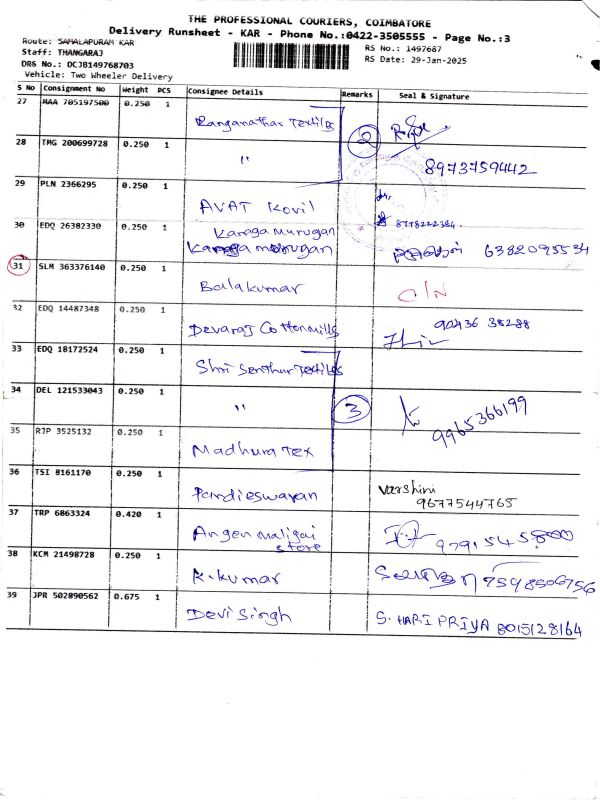 THE PROFESSIONAL COURIERS, COIMBATORE
Delivery Runsheet - KAR - Phone No.:0422-3505555 - Page No.:3
Route: SAMALAPURAM KAR
RS No.: 1497687
Staff: THANGARAJ
RS Date: 29-Jan-2025
DRS No.: DCJB149768703
Vehicle: Two Wheeler Delivery
S No Consignment No Weight PCS Consignee Details Remarks Seal & Signature
27 MAA 705197500 0.250 1 Ranganathar Textiles
2
28 TMG 200699728 0.250 1 " 8973759442
29 PLN 2366295 0.250 1 AVAT Kovil
8778222384
30 EDQ 26382330 0.250 1 Karaga Murugan
Karaga murugan 6382095534
31 SLM 363376140 0.250 1 Balakumar O/N
32 EDQ 14487348 0.250 1 Devaraj Cottonmills 90436 38288
33 EDQ 18172524 0.250 1 Shri Senthur Textiles
34 DEL 121533043 0.250 1 " 3 9965366199
35 RJP 3525132 0.250 1 Madhura Tex
36 TSI 8161170 0.250 1 Pandieswaran Varshini
9677544765
37 TRP 6863324 0.420 1 Angen maligai
store 9791545800
38 KCM 21498728 0.250 1 R.kumar 7598506756
39 JPR 502890562 0.675 1 Devi Singh S. HARI PRIYA 8015128164